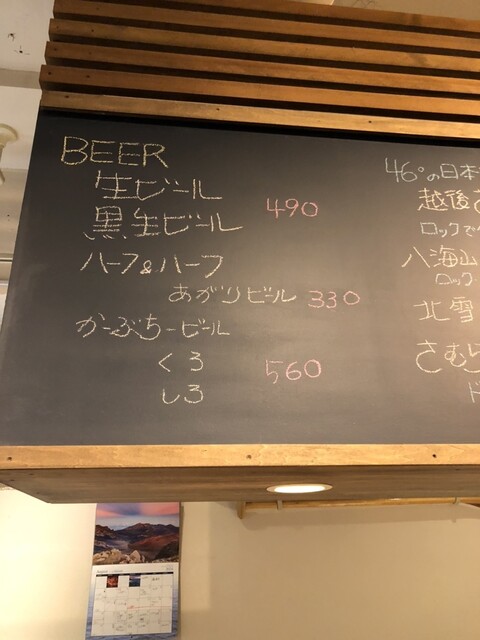 BEER
生ビール
黒生ビール 490
ハーフ&ハーフ
あがりビール 330
かーぶちービール
くろ 560
しろ
46°の日本
越後さ
ロックで
八海山
ロック
北雪
さむら
ド